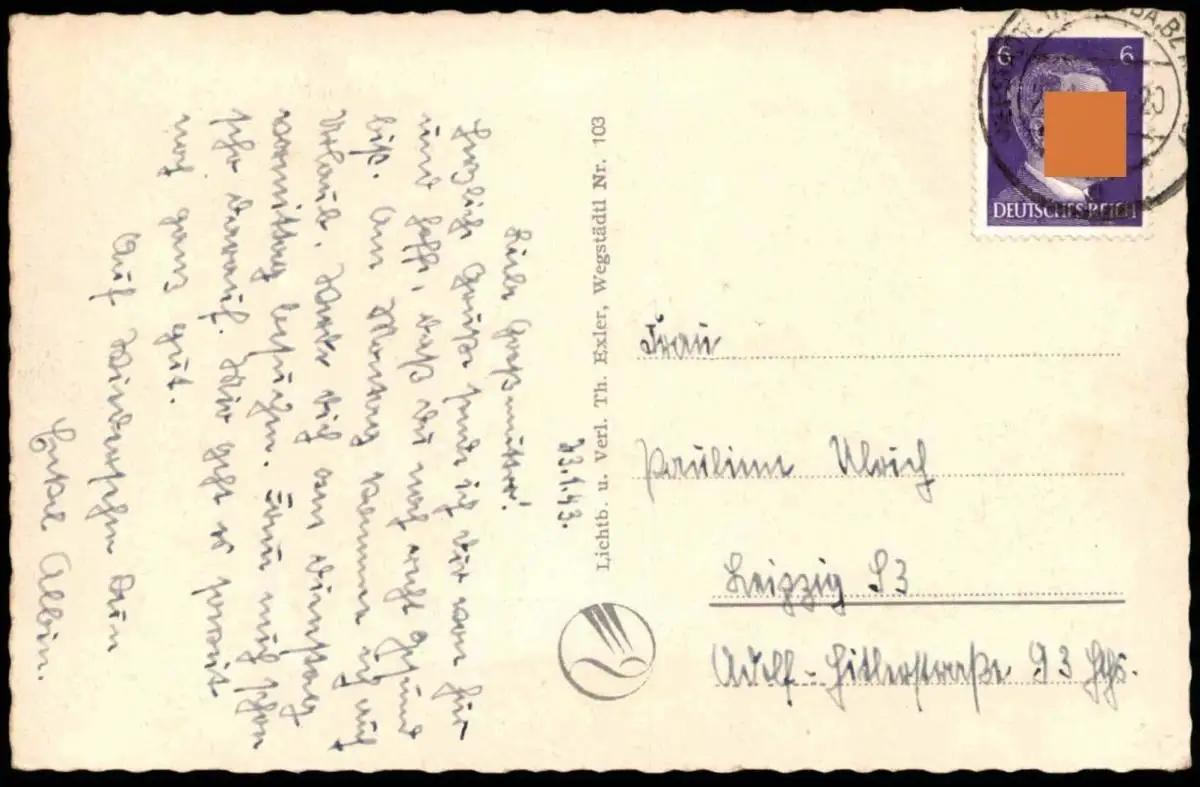 23.1.43.
Liebe Großmutter!
Herzliche Grüße sende ich dir von hier
und hoffe, daß du noch recht gesund
bist. Am Montag komme ich auf
Urlaub. Werde dich am Dienstag
vormittag besuchen. Freue mich schon
sehr darauf. Mir geht es soweit
noch ganz gut.
Auf Wiedersehen Dein
Enkel Albin.
Lichtb. u. Verl. Th. Exler, Wegstädtl Nr. 103
6 6
DEUTSCHES REICH
20
Frau
Pauline Ulrich
Leipzig S3
Adolf-Hitlerstraße 93 Hths.